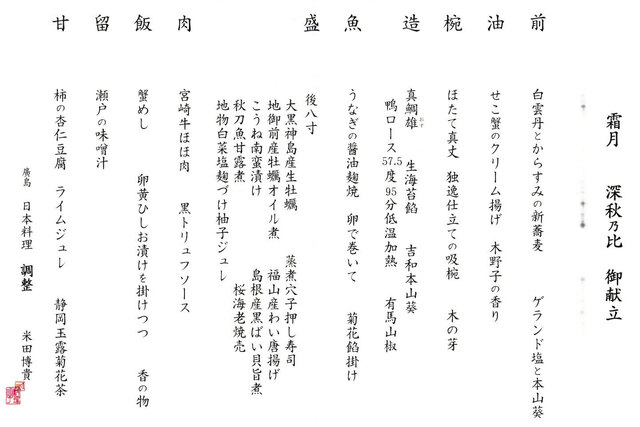 霜月　深秋乃比　御献立
前　白雲丹とからすみの新蕎麦　ゲランド塩と本山葵
油　せこ蟹のクリーム揚げ　木野子の香り
椀　ほたて真丈　独逸仕立ての吸椀　木の芽
造　真鯛雄　生海苔餡　吉和本山葵
鴨ロース57.5度95分低温加熱　有馬山椒
魚　うなぎの醤油麹焼　卵で巻いて　菊花餡掛け
盛　後八寸
大黒神島産生牡蠣　蒸煮穴子押し寿司
地御前産牡蠣オイル煮　福山産わい唐揚げ
こうね南蛮漬け　島根産黒ばい貝旨煮
秋刀魚甘露煮　桜海老焼売
地物白菜塩麹づけ柚子ジュレ
肉　宮崎牛ほほ肉　黒トリュフソース
飯　蟹めし　卵黄ひしお漬けを掛けつつ　香の物
留　瀬戸の味噌汁
甘　柿の杏仁豆腐　ライムジュレ　静岡玉露菊花茶
廣島　日本料理　調整　米田博貴